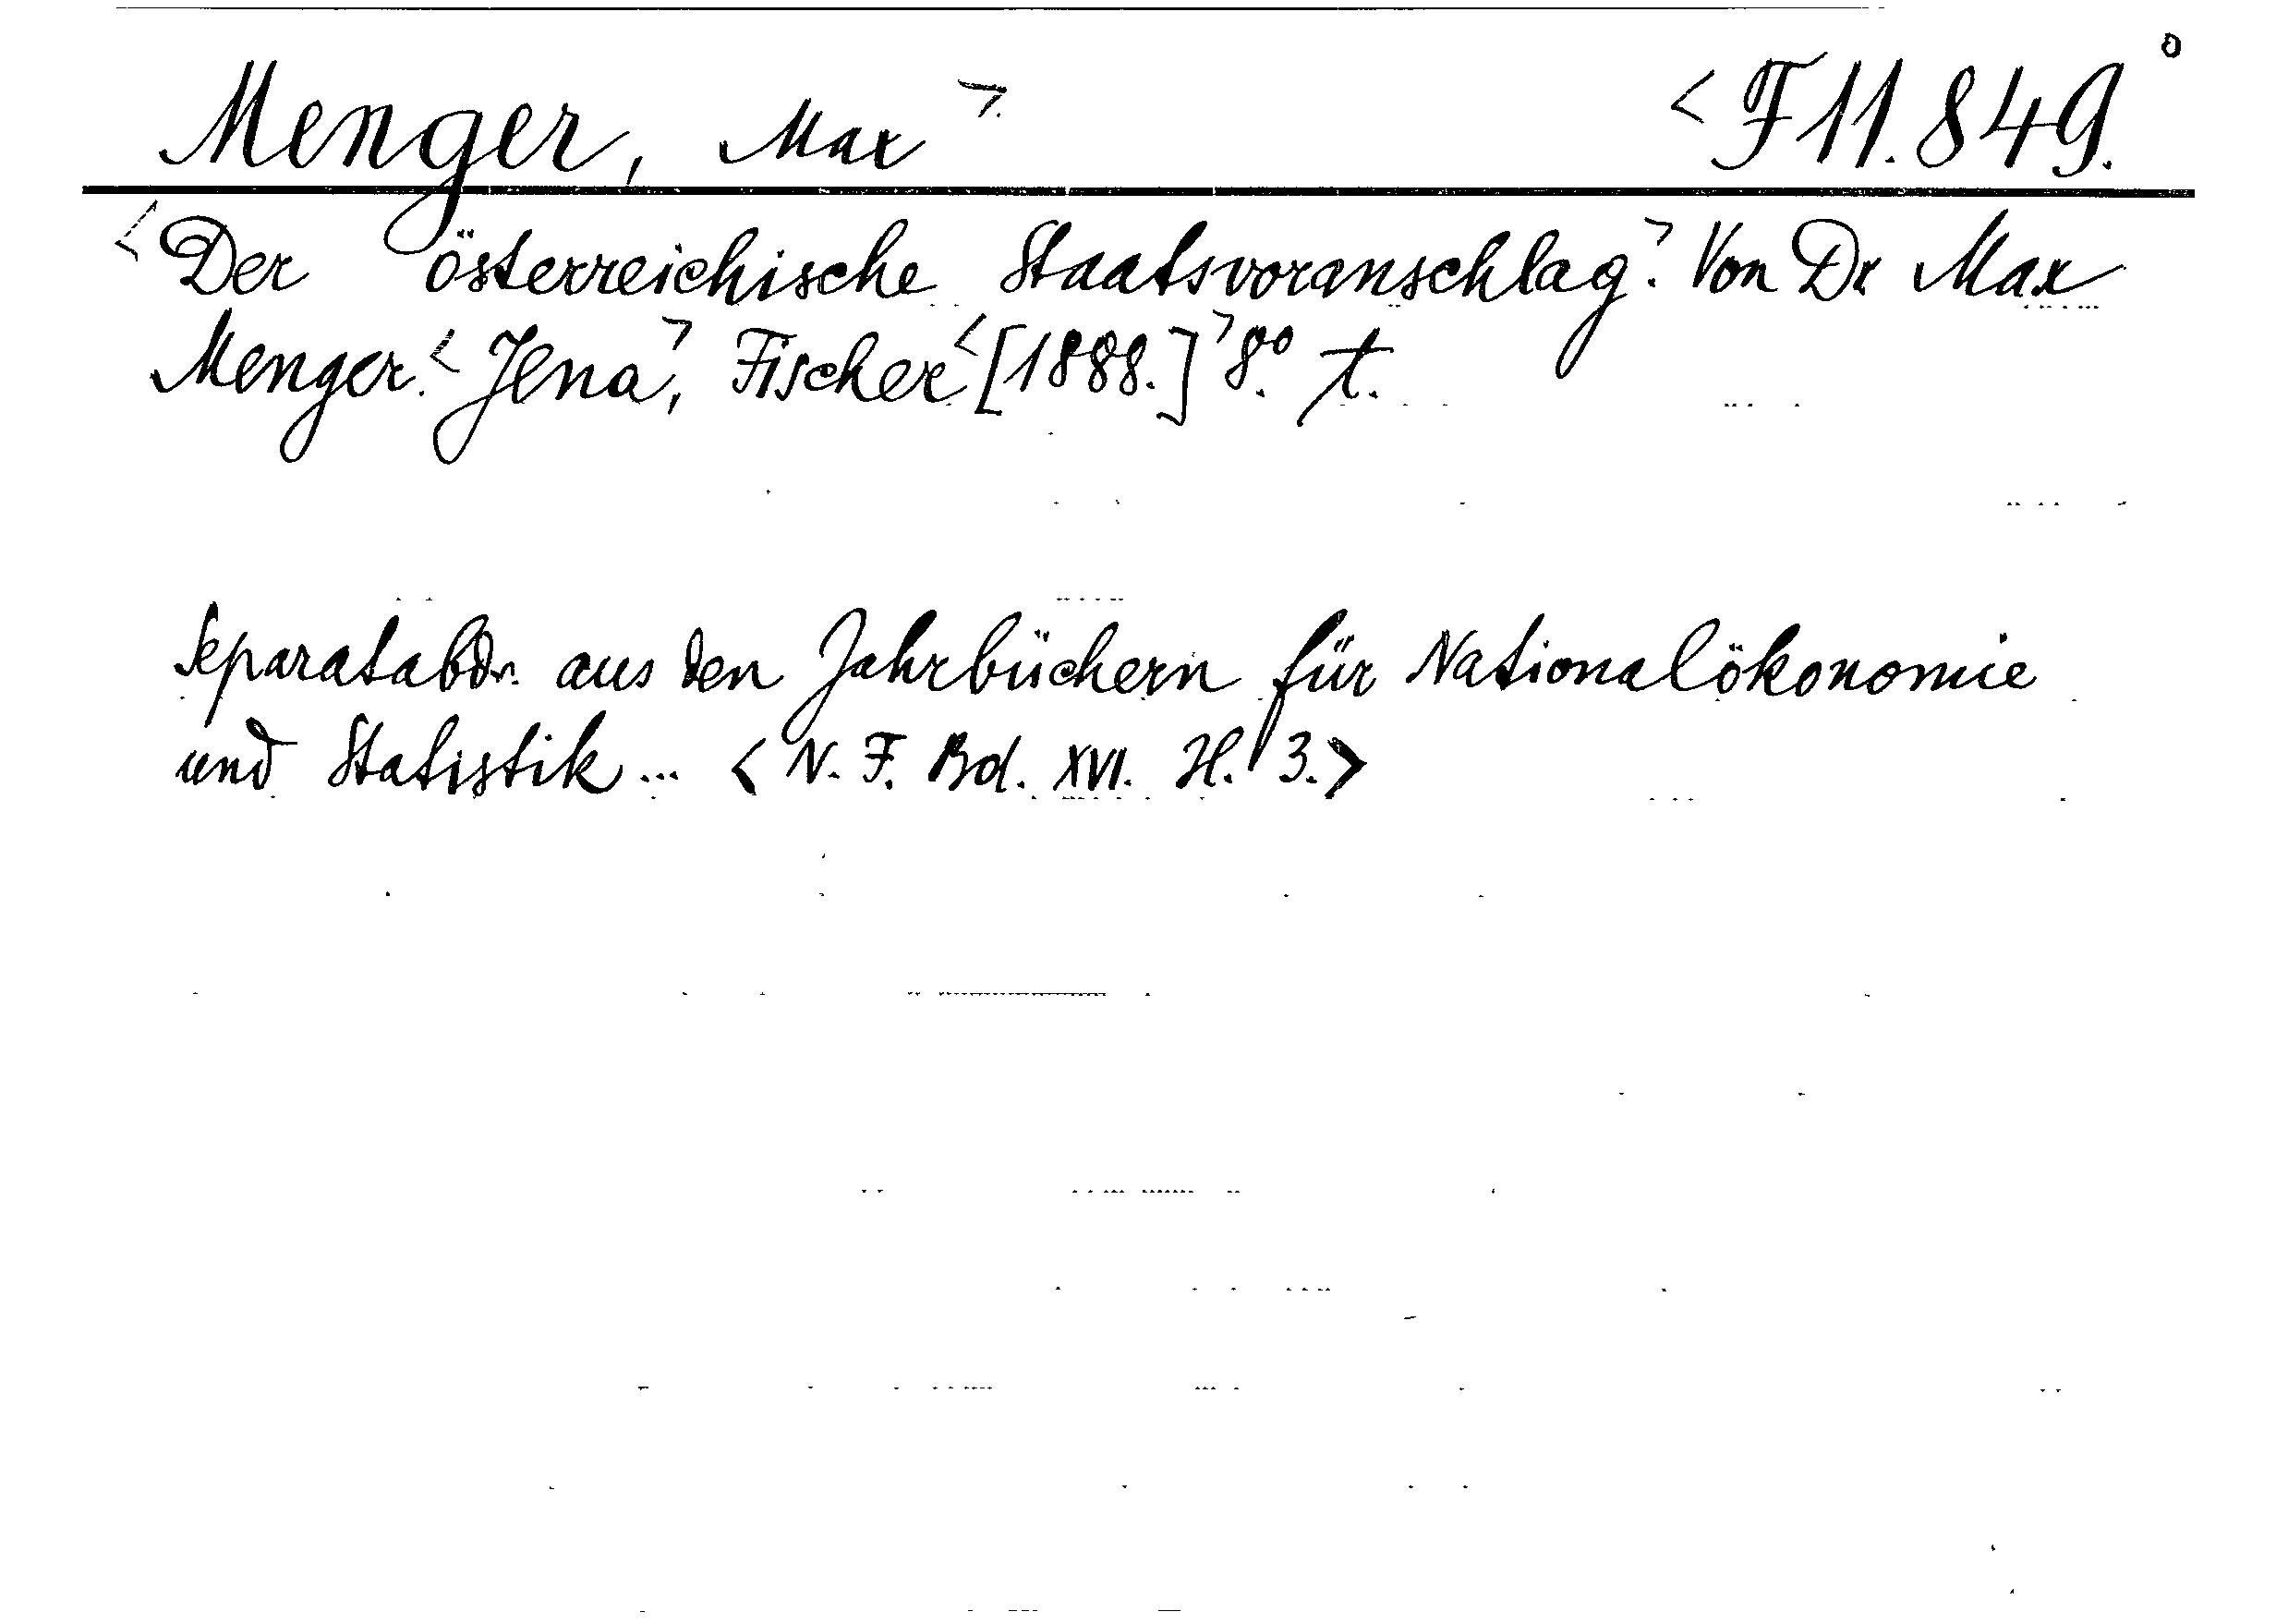 Menger, Max > < F 11.849.
< Der österreichische Staatsvoranschlag >. Von Dr Max
Menger. < Jena >, Fischer < [1888.] > 8.º t.
Separatabdr. aus den Jahrbüchern für Nationalökonomie
und Statistik ... < N. F. Bd. XVI. H. 3. >